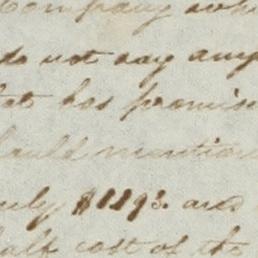 Company
do not say any
has promis
should mention
July $1193. and
half cost of the